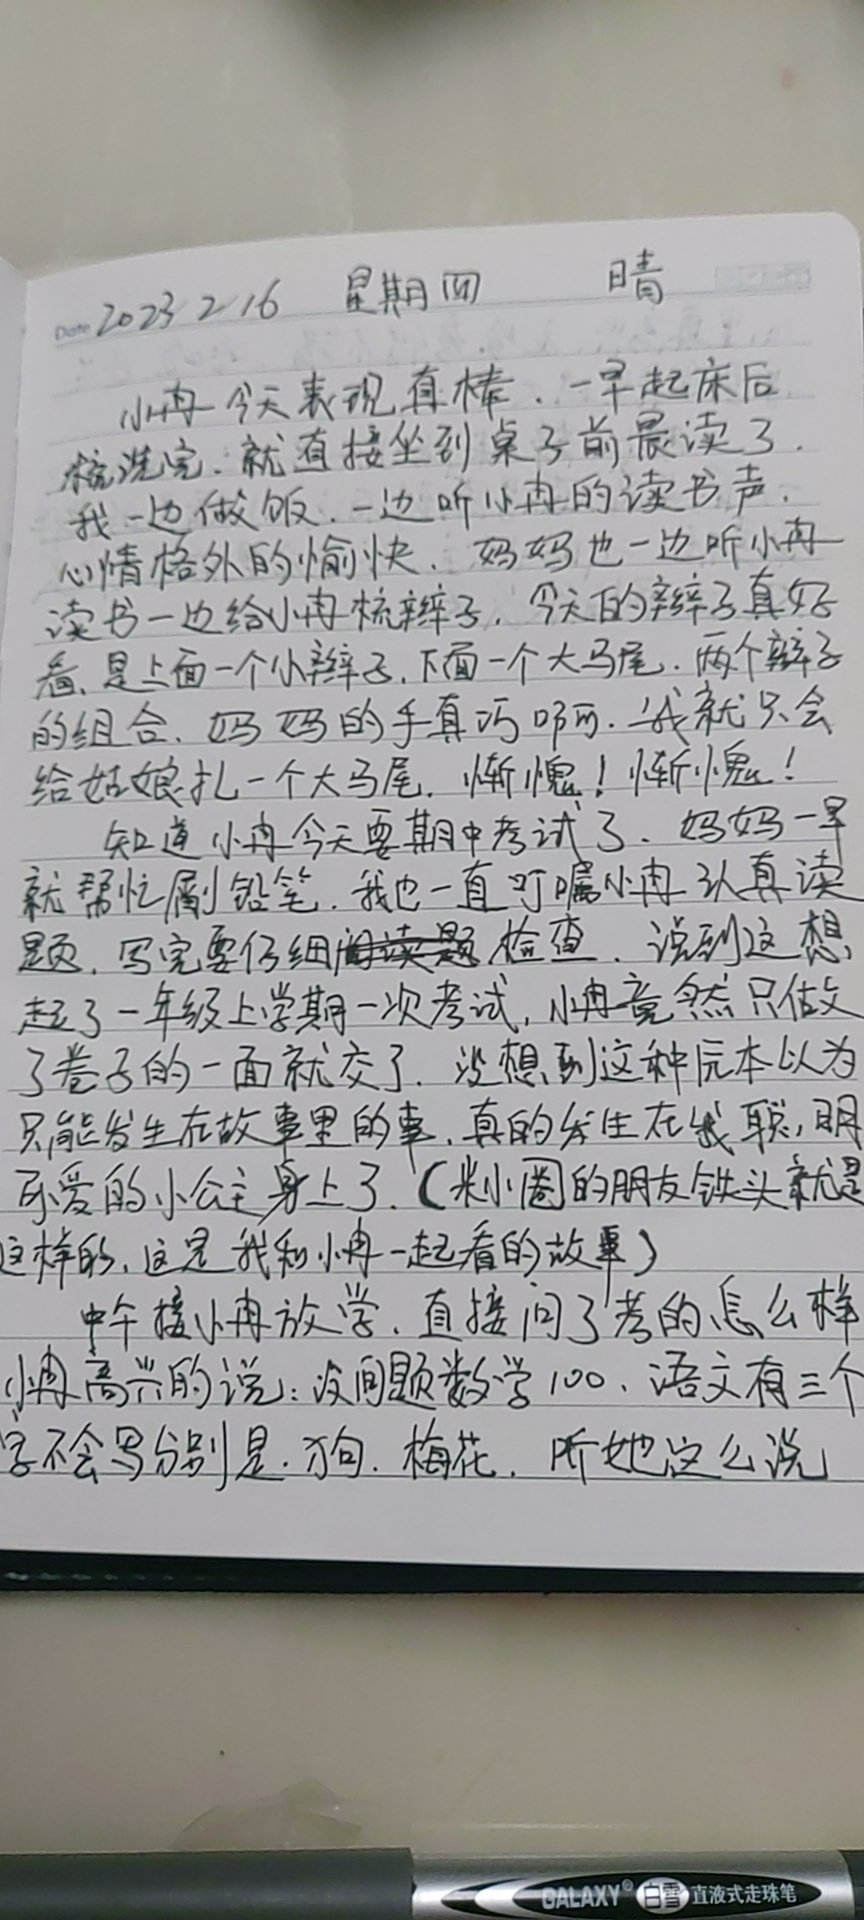 Date 2023 2 16 星期四 晴
小冉今天表现真棒.一早起床后
梳洗完.就直接坐到桌子前晨读了.
我一边做饭.一边听小冉的读书声.
心情格外的愉快.妈妈也一边听小冉
读书一边给小冉梳辫子.今天的辫子真好
看.是上面一个小辫子.下面一个大马尾.两个辫子
的组合.妈妈的手真巧啊.我就只会
给姑娘扎一个大马尾.惭愧!惭愧!
知道小冉今天要期中考试了.妈妈一早
就帮忙削铅笔.我也一直叮嘱小冉认真读
题.写完要仔细检查.说到这想
起了一年级上学期一次考试,小冉竟然只做
了卷子的一面就交了.没想到这种原本以为
只能发生在故事里的事.真的发生在我聪明
可爱的小公主身上了.(米小圈的朋友铁头就是
这样的,这是我和小冉一起看的故事)
中午接小冉放学.直接问了考的怎么样
小冉高兴的说:没问题数学100、语文有三个
字不会写分别是.狗.梅花.听她这么说
GALAXY® 白雪 直液式走珠笔